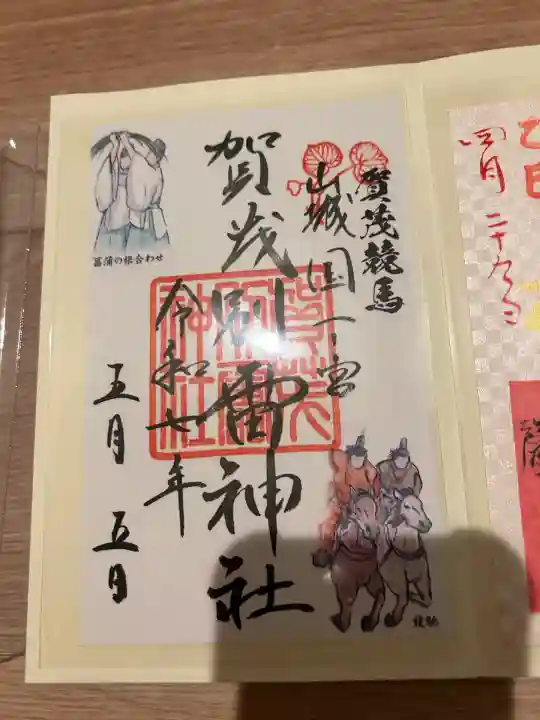 賀茂競馬
山城国一宮
賀茂別雷神社
令和七年
五月五日
菖蒲の根合わせ
競馳
四月二十九日